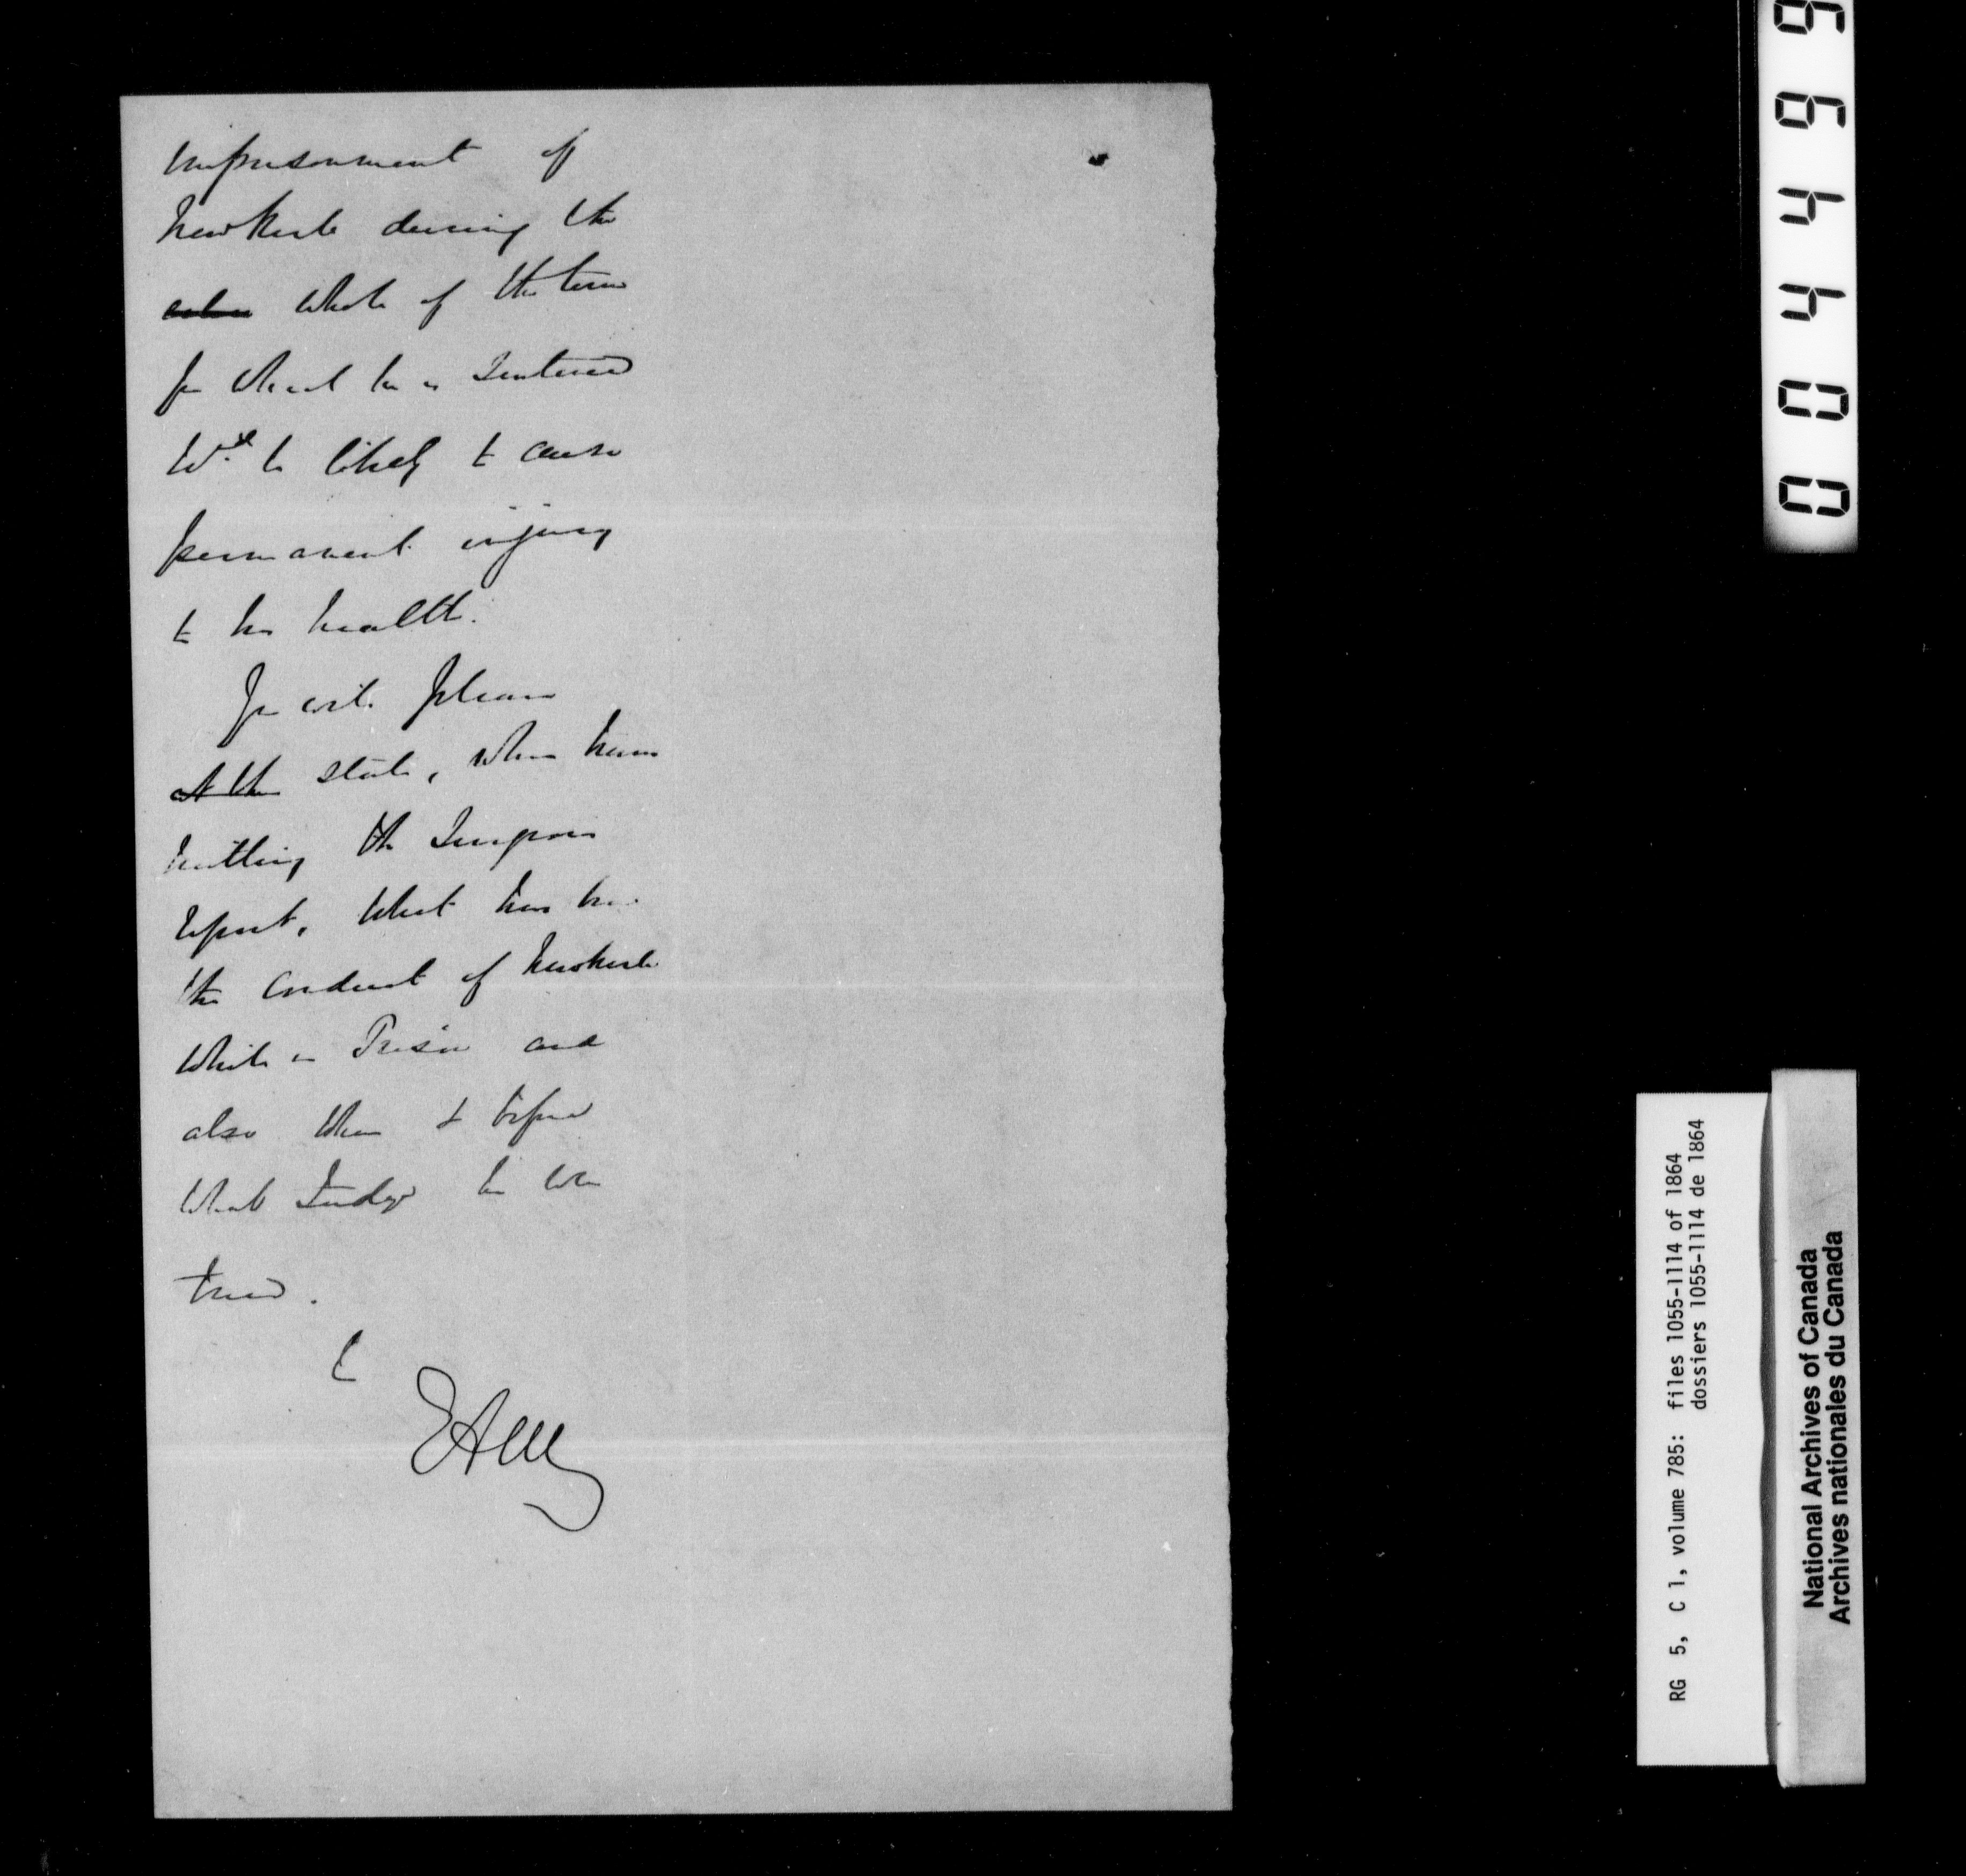 imprisonment of
Newkirk during the
whole of the term
for which he is sentenced
wd. be likely to cause
permanent injury
to his health.
You will please
also state, when trans
mitting the Surgeon's
report, what has been
the conduct of Newkirk
while in Prison and
also when & before
what Judge he was
tried.
EAM
004499
RG 5, C 1, volume 785: files 1055-1114 of 1864
dossiers 1055-1114 de 1864
National Archives of Canada
Archives nationales du Canada